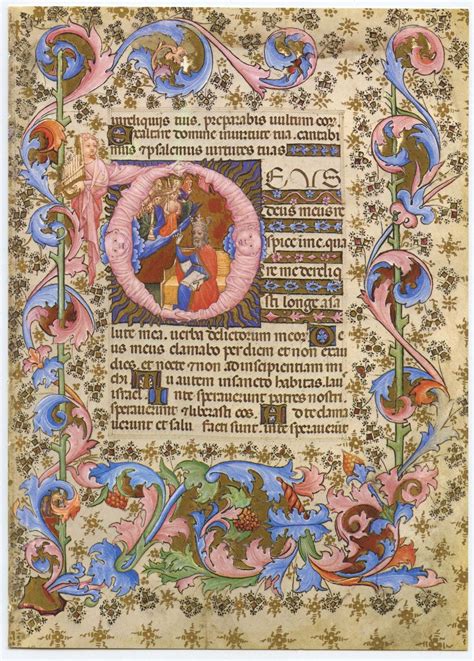 inreliquijs tuis, preparabis uultum eor
Exaltare domine inuirtute tua. cantabi
mus ⁊ psalemus uirtutes tuas
DEUS
deus meus re
spice inme. qua
re me dereliq
isti longe asa
lute mea. uerba delictorum meor
Deus meus clamabo per diem et non exau
dies et nocte ⁊ non ad insipientiam mi
chi Tu autem insancto habitas. lau
israel. In te sperauerunt patres nostri
sperauerunt ⁊ liberasti eos. Ad te clama
uerunt et salui facti sunt. inte sperauerunt